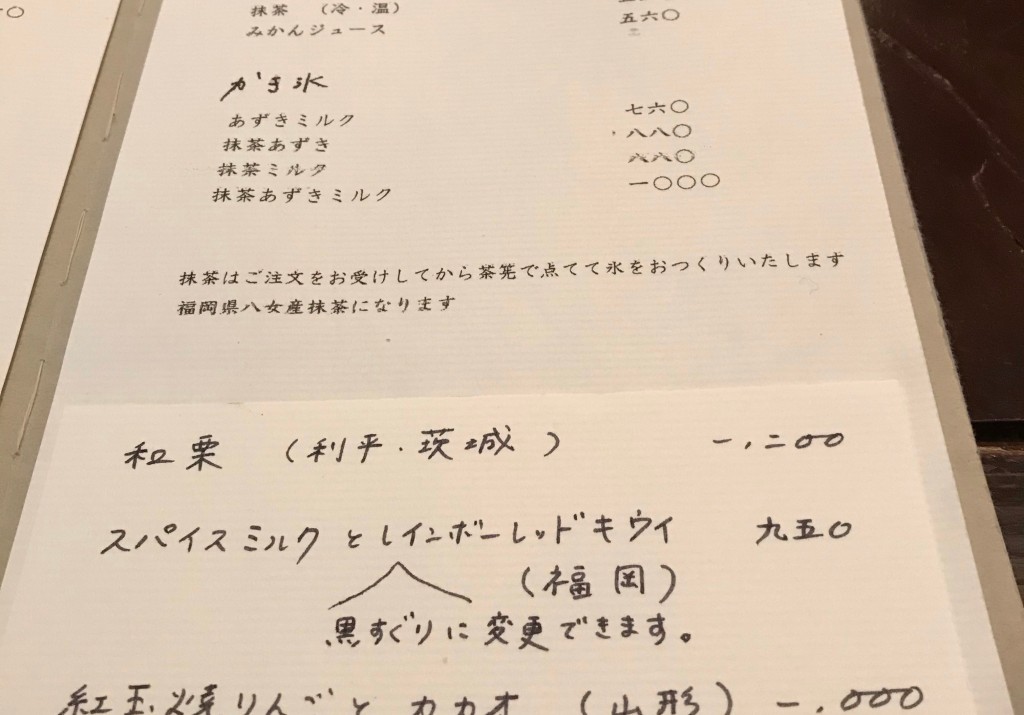 抹茶 (冷・温)
みかんジュース 五六〇
かき氷
あずきミルク 七六〇
抹茶あずき 八八〇
抹茶ミルク 八八〇
抹茶あずきミルク 一〇〇〇
抹茶はご注文をお受けしてから茶筅で点てて氷をおつくりいたします
福岡県八女産抹茶になります
和栗 (利平・茨城) 一,二00
スパイスミルクとレインボーレッドキウイ 九五0
(福岡)
黒すぐりに変更できます。
紅玉焼りんごとカカオ (山形) 一,000